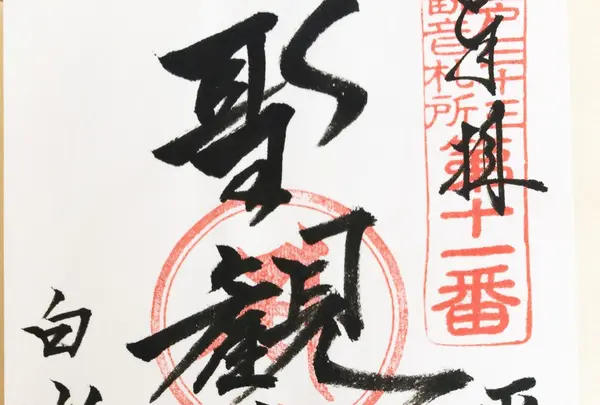 奉拝
三十三
観音札所
第十一番
聖観
白